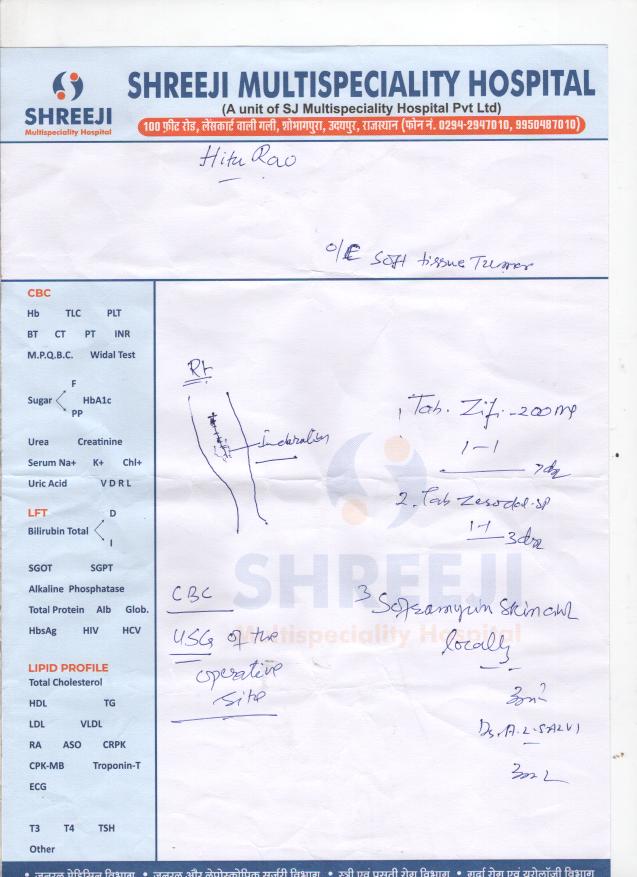 SHREEJI
Multispeciality Hospital
SHREEJI MULTISPECIALITY HOSPITAL
(A unit of SJ Multispeciality Hospital Pvt Ltd)
100 फ़ीट रोड, लेंसकार्ट वाली गली, शोभागपुरा, उदयपुर, राजस्थान (फोन नं. 0294-2947010, 9950487010)
Hitu Rao
O/E Soft tissue Tumor
CBC
Hb TLC PLT
BT CT PT INR
M.P.Q.B.C. Widal Test
F
Sugar HbA1c
PP
Urea Creatinine
Serum Na+ K+ Chl+
Uric Acid V D R L
LFT
D
Bilirubin Total
I
SGOT SGPT
Alkaline Phosphatase
Total Protein Alb Glob.
HbsAg HIV HCV
LIPID PROFILE
Total Cholesterol
HDL TG
LDL VLDL
RA ASO CRPK
CPK-MB Troponin-T
ECG
T3 T4 TSH
Other
Rt
CBC
USG of the
operative
site
1, Tab. Zifi - 200 mg
1-1
2. Tab
1-1
3 Soframycin Skin
locally
Dr. A. L. SALVI
SHREEJI
Multispeciality Hospital
• जनरल मेडिसिन विभाग • जनरल और लेप्रोस्कोपिक सर्जरी विभाग • स्त्री एवं प्रसूती रोग विभाग • गुर्दा रोग एवं यूरोलोजी विभाग